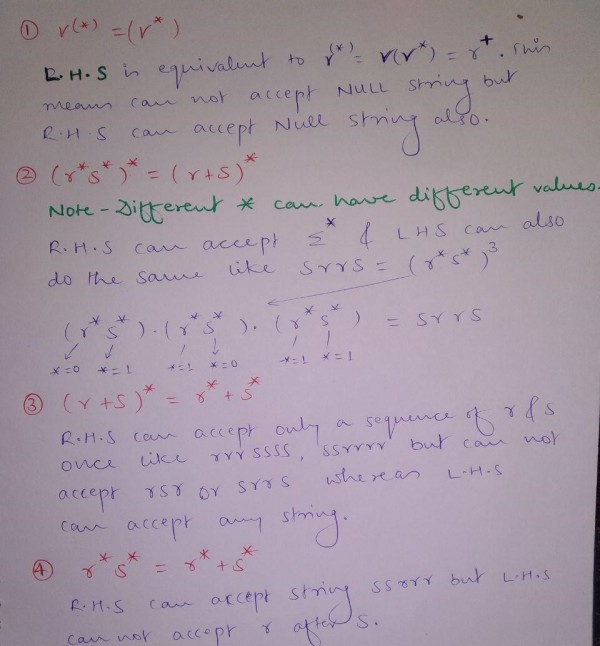 ① r(*) = (r*)
R.H.S is equivalent to r(*) = r(r*) = r+. This
means can not accept NULL string but
R.H.S can accept Null string also.
② (r*s*)* = (r+s)*
Note - Different * can have different values.
R.H.S can accept Σ* & LHS can also
do the same like srrs = (r*s*)3
(r*s*).(r*s*).(r*s*) = srrs
*=0 *=1 *=1 *=0 *=1 *=1
③ (r+s)* = r*+s*
R.H.S can accept only a sequence of r & s
once like rrrssss, ssrrrr but can not
accept rsr or srrs whereas L.H.S
can accept any string.
④ r*s* = r*+s*
R.H.S can accept string ssrrr but L.H.S
can not accept r after s.